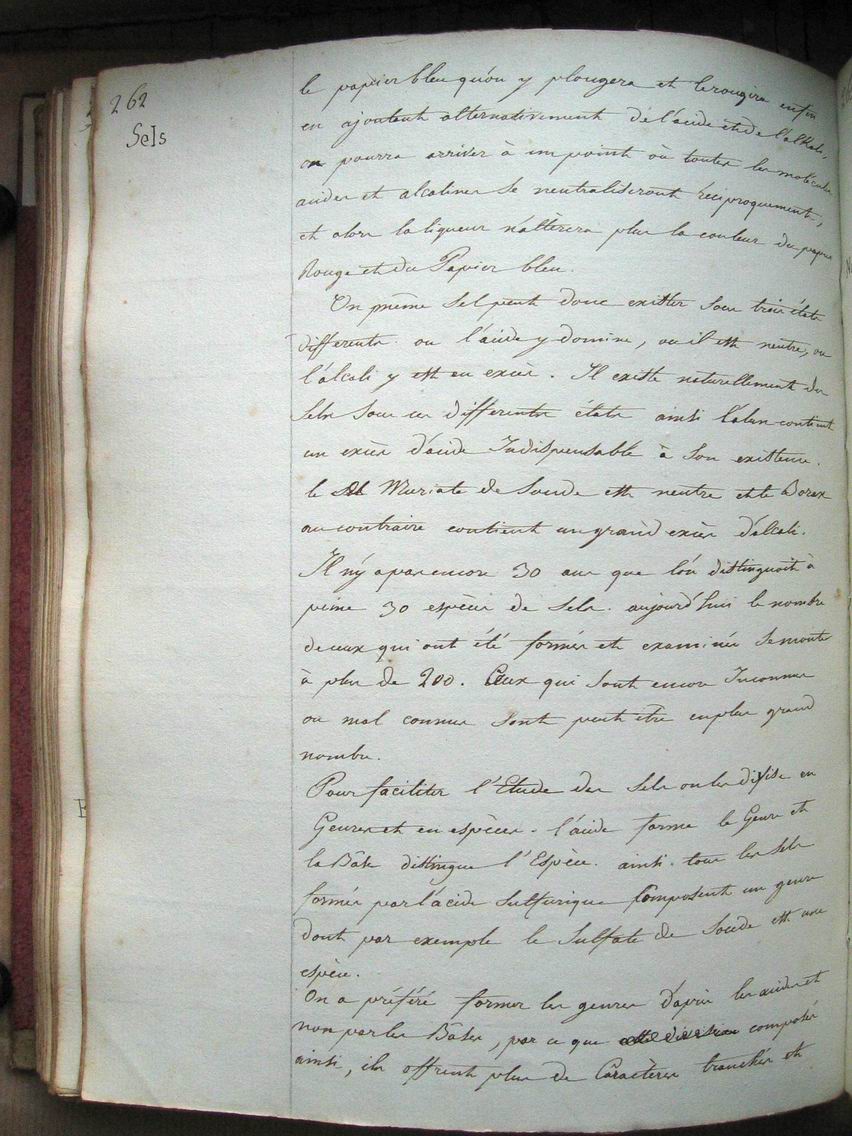 262
Sels
le papier bleu qu'on y plongera et le rougira enfin
en ajoutant alternativement de l'acide et de l'alkali,
on pourra arriver à un point où toutes les molécules
acides et alcalines se neutraliseront réciproquement,
et alors la liqueur n'altèrera plus la couleur du papier
Rouge et du Papier bleu.
Un même sel peut donc exister sous trois états
differents. ou l'acide y domine, ou il est neutre, ou
l'álcali y est en excès. Il existe naturellement des
sels sous ces differents états ainsi l'alun contient
un excès d'acide Indispensable à son existence.
le Muriate de Soude est neutre et le Borax
au contraire contient un grand excès d'alcali.
Il n'y a pas encore 30 ans que l'on distinguoit à
peine 30 espèces de Sels. aujourd'hui le nombre
de ceux qui ont été formés et examinés se monte
à plus de 200. Ceux qui sont encore Inconnus
ou mal connus sont peut être en plus grand
nombre.
Pour faciliter l'Etude des Sels on les divise en
Genres et en espèces. l'acide forme le Genre et
la Bâse distingue l'Espèce. ainsi tous les Sels
formés par l'acide sulfurique Composent un genre
dont par exemple le Sulfate de Soude est une
espèce.
On a préféré former les genres d'après les acides et
non par les Bâses, par ce que composés
ainsi, ils offrent plus de Caractères tranchés et